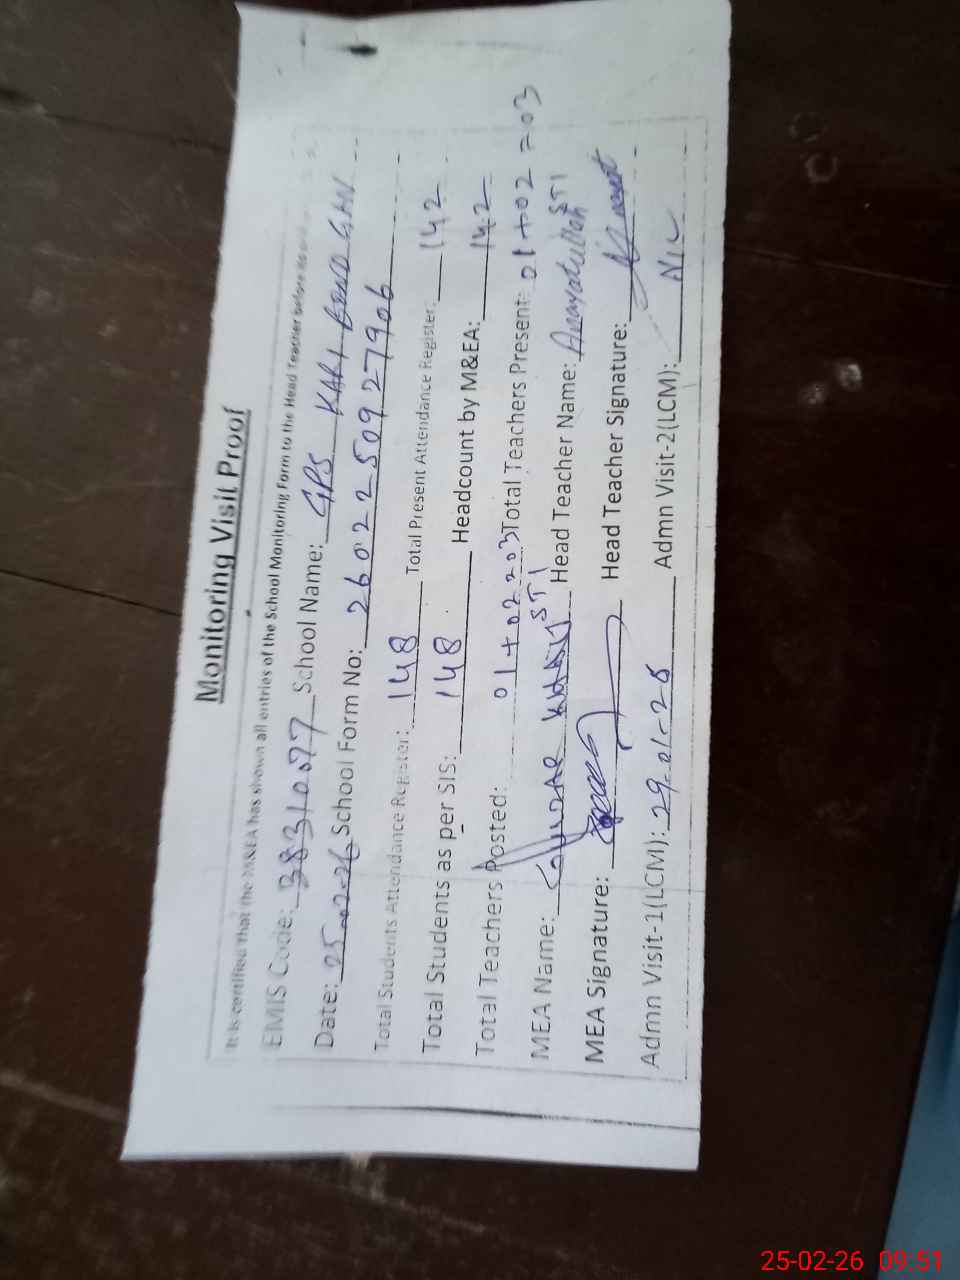 Monitoring Visit Proof
It is certified that the M&EA has shown all entries of the School Monitoring Form to the Head Teacher before
EMIS Code: 38310077 School Name: GPS KARI
Date: 25-02-26 School Form No: 260225092 7906
Total Students Attendance Register: 148 Total Present Attendance Register: 142
Total Students as per SIS: 148 Headcount by M&EA: 142
Total Teachers Posted: 01+02=03 Total Teachers Present: 01+02=03
MEA Name: KHAN Head Teacher Name: Anayatullah ST1
MEA Signature: Head Teacher Signature:
Admn Visit-1(LCM): 29-01-26 Admn Visit-2(LCM): NIL
25-02-26 09:51